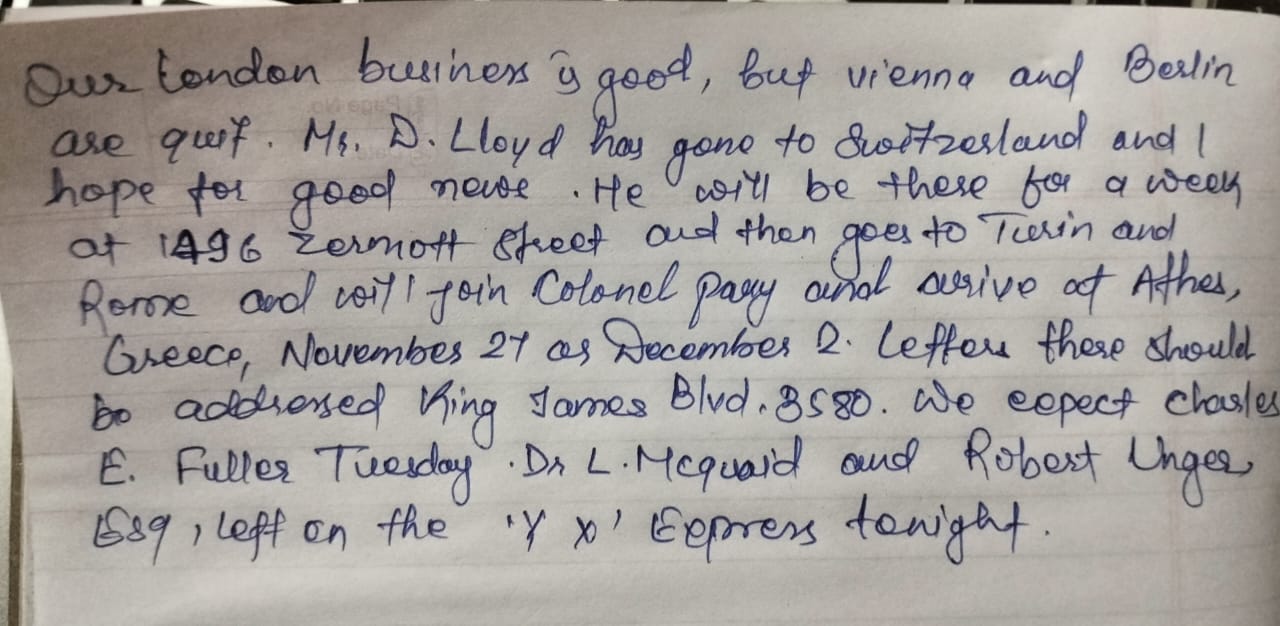 Our London business is good, but vienna and Berlin
are quit. Mr. D. Lloyd has gone to Switzerland and I
hope for good news. He will be there for a week
at 1496 Zermott Street and then goes to Turin and
Rome and will join Colonel Parry and arrive at Athes,
Greece, November 27 or December 2. Letters there should
be addressed King James Blvd. 3580. We expect Charles
E. Fuller Tuesday. Dr L. Mcquaid and Robert Unger,
Esq, left on the 'Y X' Express tonight.